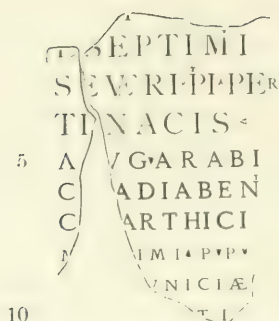 L SEPTIMI
SEVERI·PI·PER
TINACIS
5 A VG·ARABI
C ADIABEN
C ARTHICI
IMI·P·P·
VNICIÆ
10 TI